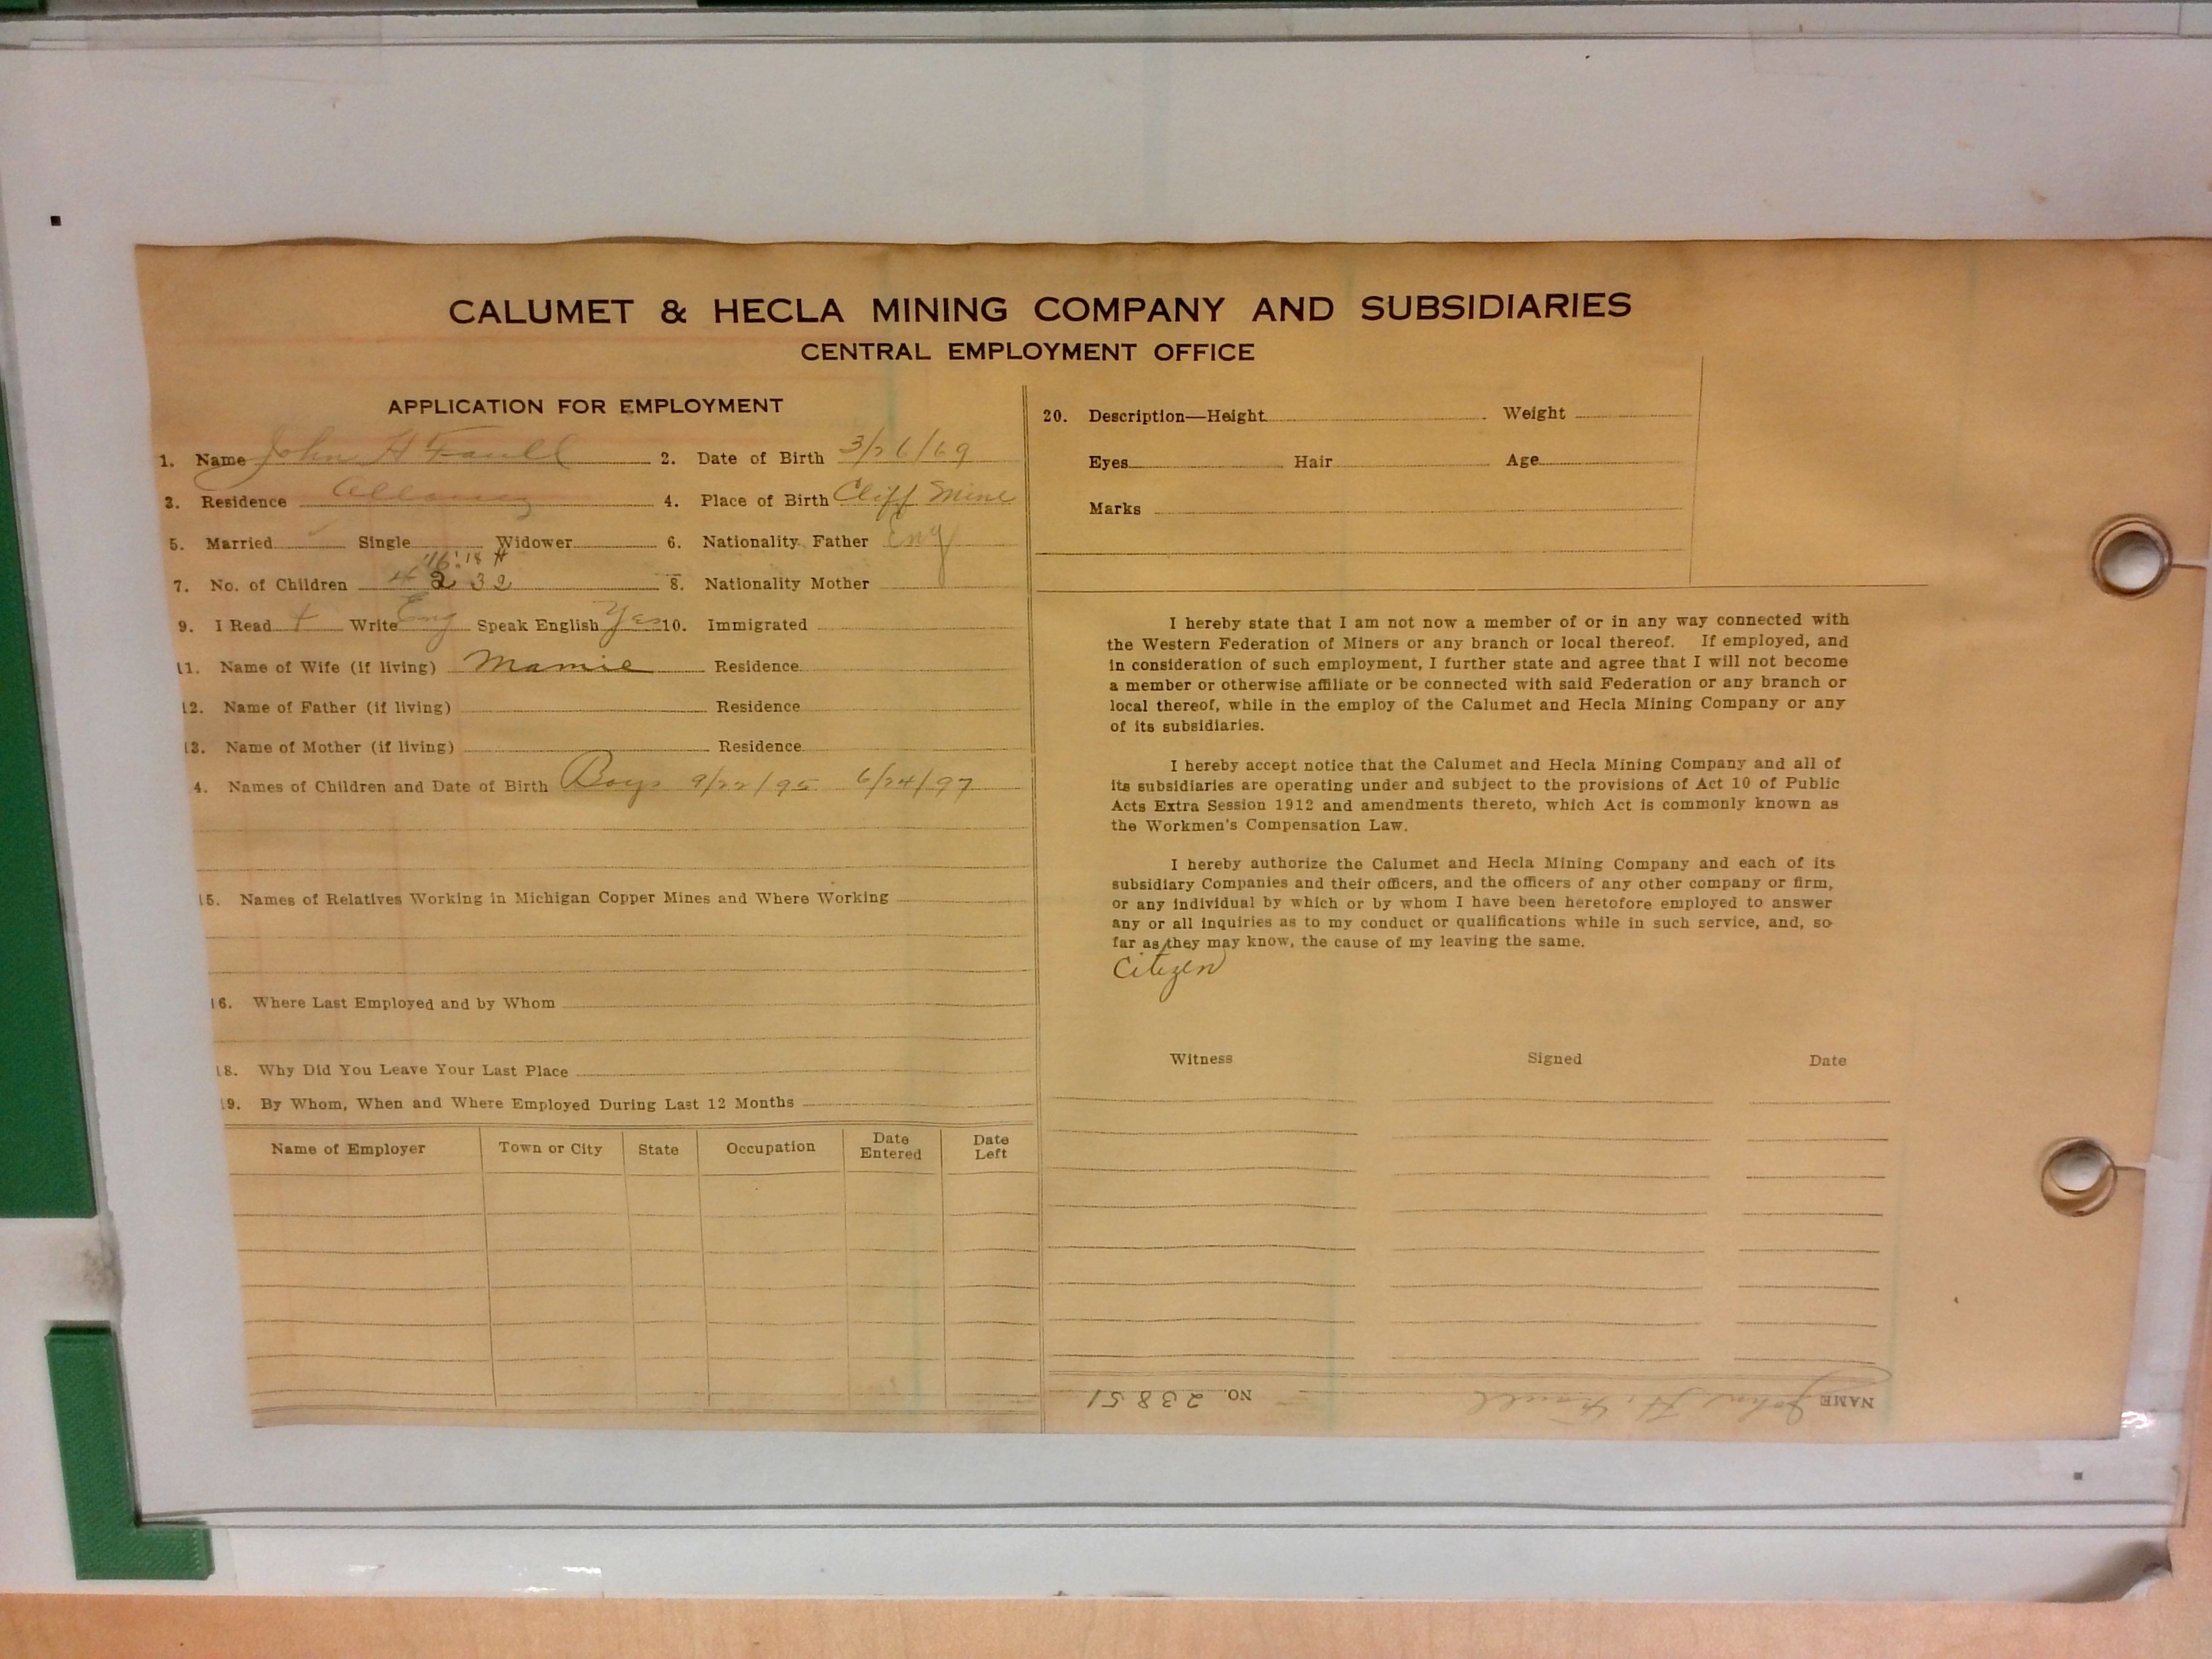 CALUMET & HECLA MINING COMPANY AND SUBSIDIARIES
CENTRAL EMPLOYMENT OFFICE
APPLICATION FOR EMPLOYMENT
1. Name John H Faull 2. Date of Birth 3/26/69
3. Residence Allouez 4. Place of Birth Cliff Mine
5. Married Single Widower 6. Nationality Father Eng
'16 '18
7. No. of Children 4 2 3 2 8. Nationality Mother
9. I Read + Write Eng Speak English Yes 10. Immigrated
11. Name of Wife (if living) Mamie Residence
12. Name of Father (if living) Residence
13. Name of Mother (if living) Residence
4. Names of Children and Date of Birth Boys 9/22/95 6/24/97
15. Names of Relatives Working in Michigan Copper Mines and Where Working
16. Where Last Employed and by Whom
18. Why Did You Leave Your Last Place
19. By Whom, When and Where Employed During Last 12 Months
Name of Employer Town or City State Occupation Date Entered Date Left
20. Description—Height Weight
Eyes Hair Age
Marks
I hereby state that I am not now a member of or in any way connected with
the Western Federation of Miners or any branch or local thereof. If employed, and
in consideration of such employment, I further state and agree that I will not become
a member or otherwise affiliate or be connected with said Federation or any branch or
local thereof, while in the employ of the Calumet and Hecla Mining Company or any
of its subsidiaries.
I hereby accept notice that the Calumet and Hecla Mining Company and all of
its subsidiaries are operating under and subject to the provisions of Act 10 of Public
Acts Extra Session 1912 and amendments thereto, which Act is commonly known as
the Workmen's Compensation Law.
I hereby authorize the Calumet and Hecla Mining Company and each of its
subsidiary Companies and their officers, and the officers of any other company or firm,
or any individual by which or by whom I have been heretofore employed to answer
any or all inquiries as to my conduct or qualifications while in such service, and, so
far as they may know, the cause of my leaving the same.
Citizen
Witness Signed Date
NAME John H. Faull NO. 23851